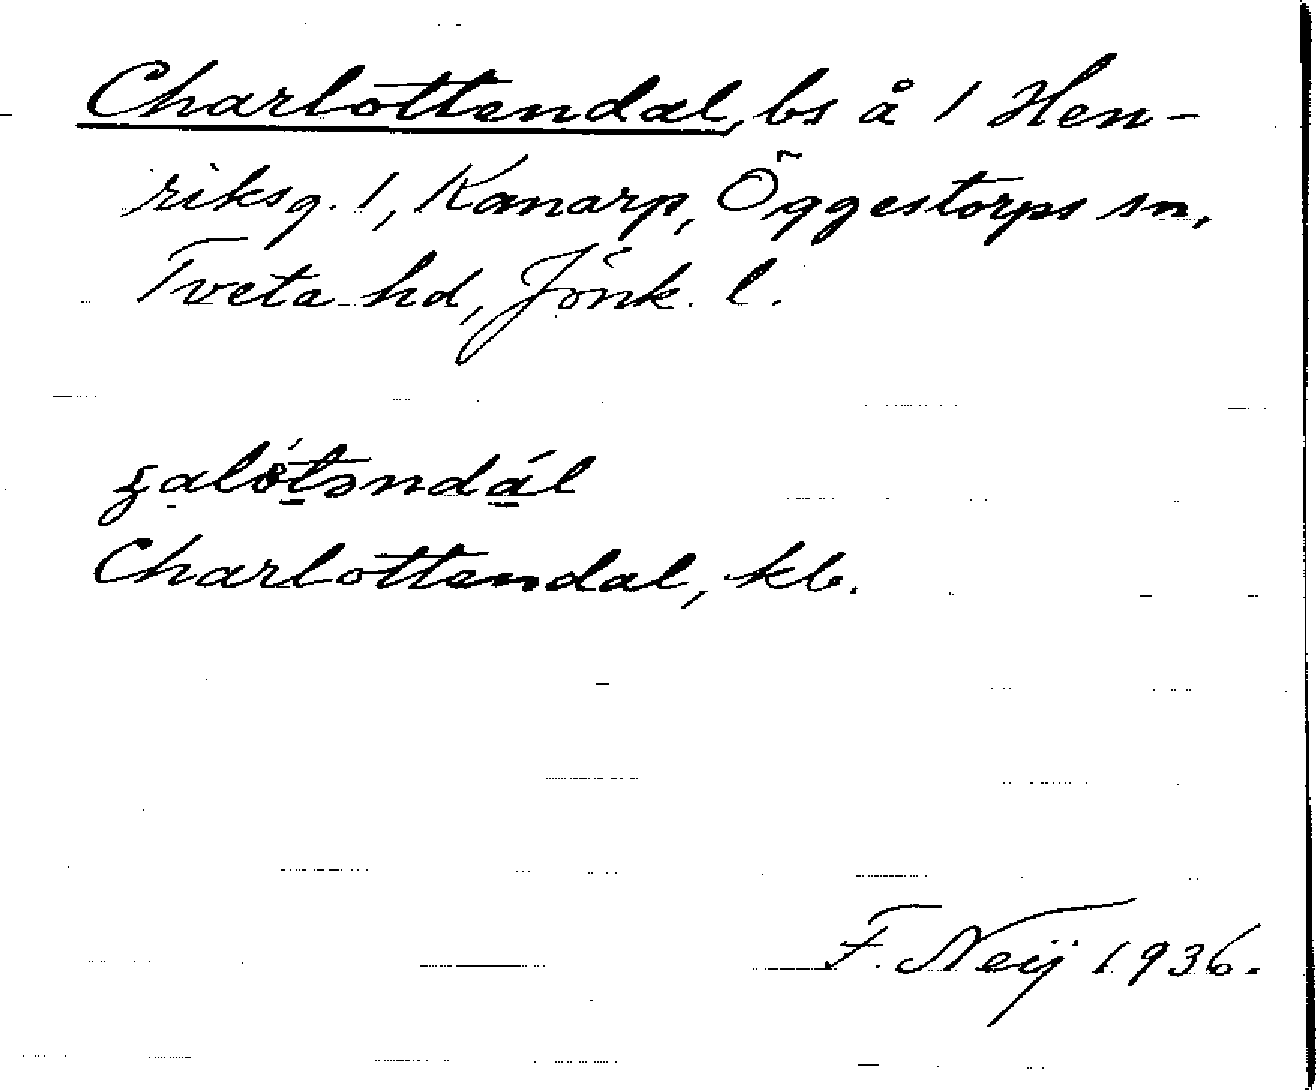 Charlottendal, bs å 1 Hen-
riksg. 1, Kanarp, Öggestorps sn,
Tveta hd, Jönk. l.
Charlottendal, kb.
F. Neij 1936.